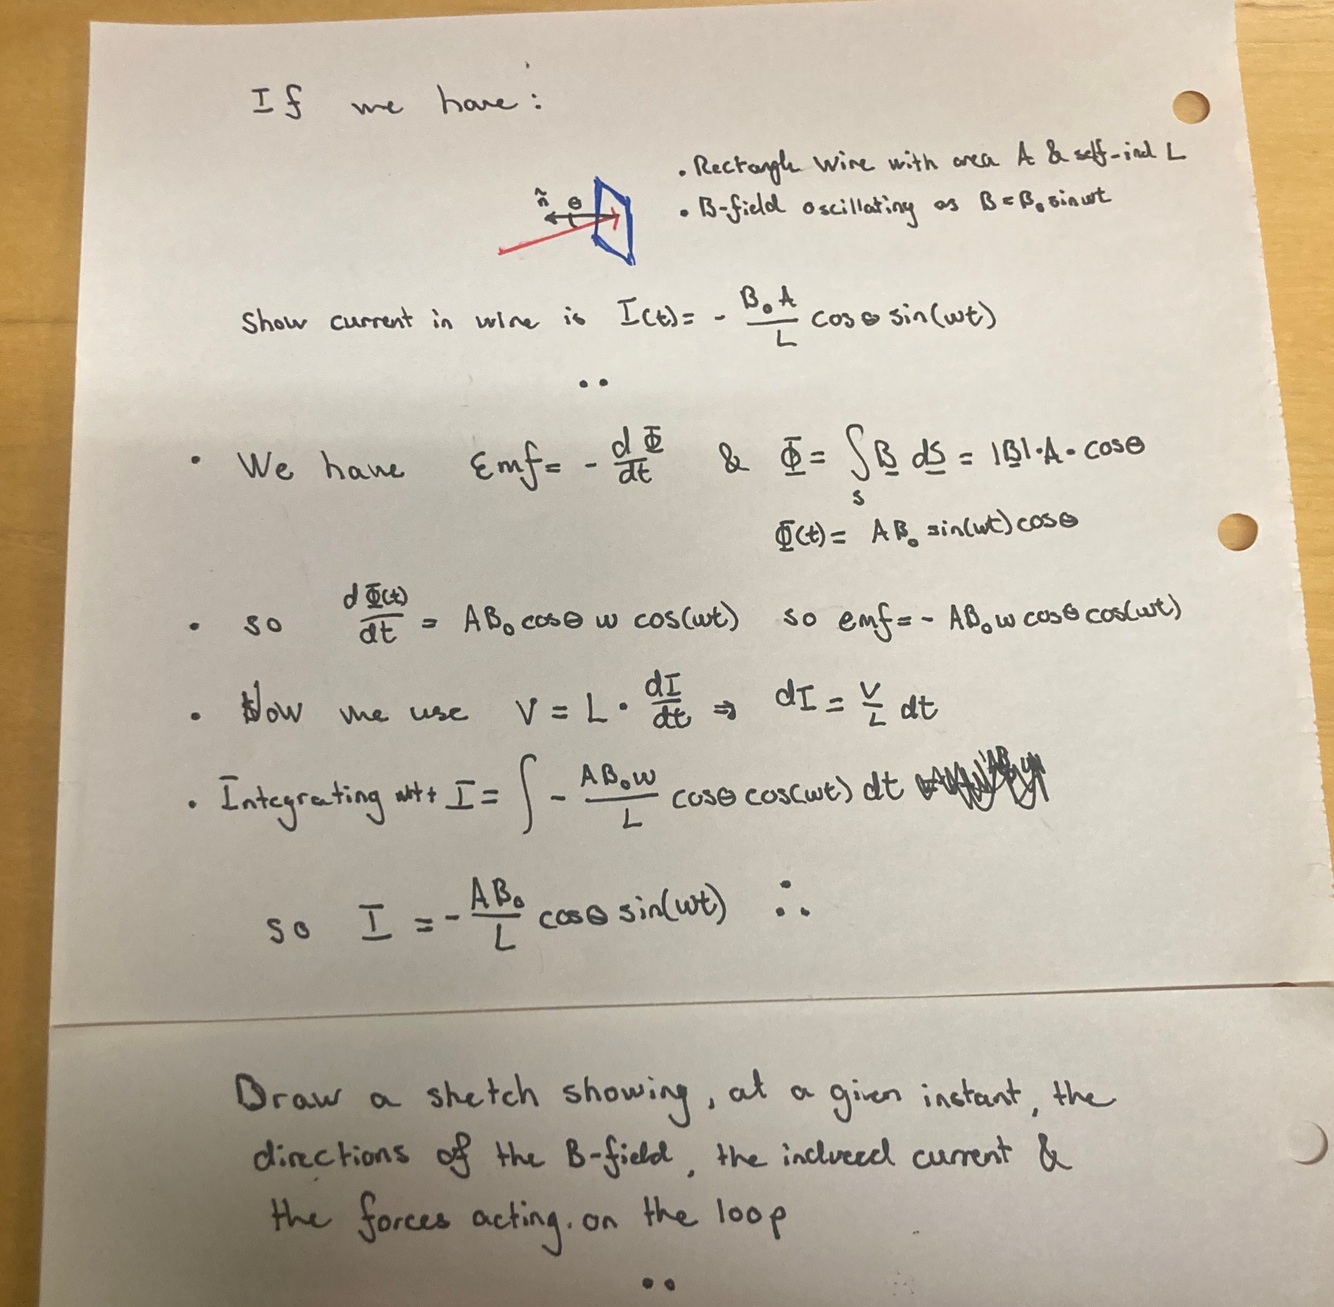 If we have:
• Rectangle wire with area A & self-ind L
• B-field oscillating as B = B₀ sinωt
n̂ θ
Show current in wire is I(t) = - B₀A/L cosθ sin(ωt)
• We have Emf = - dΦ/dt & Φ = ∫_S B dS = |B|·A·cosθ
Φ(t) = AB₀ sin(ωt) cosθ
• so dΦ(t)/dt = AB₀ cosθ ω cos(ωt) so emf = - AB₀ω cosθ cos(ωt)
• Now we use V = L · dI/dt ⇒ dI = V/L dt
• Integrating wrt t I = ∫ - AB₀ω/L cosθ cos(ωt) dt
so I = - AB₀/L cosθ sin(ωt) ∴
Draw a sketch showing, at a given instant, the
directions of the B-field, the induced current &
the forces acting on the loop